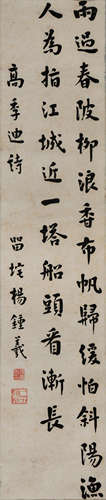 雨過春陂柳浪香布帆歸緩怕斜陽漁
人為指江城近一塔船頭看漸長
高季迪詩
留垞楊鍾羲